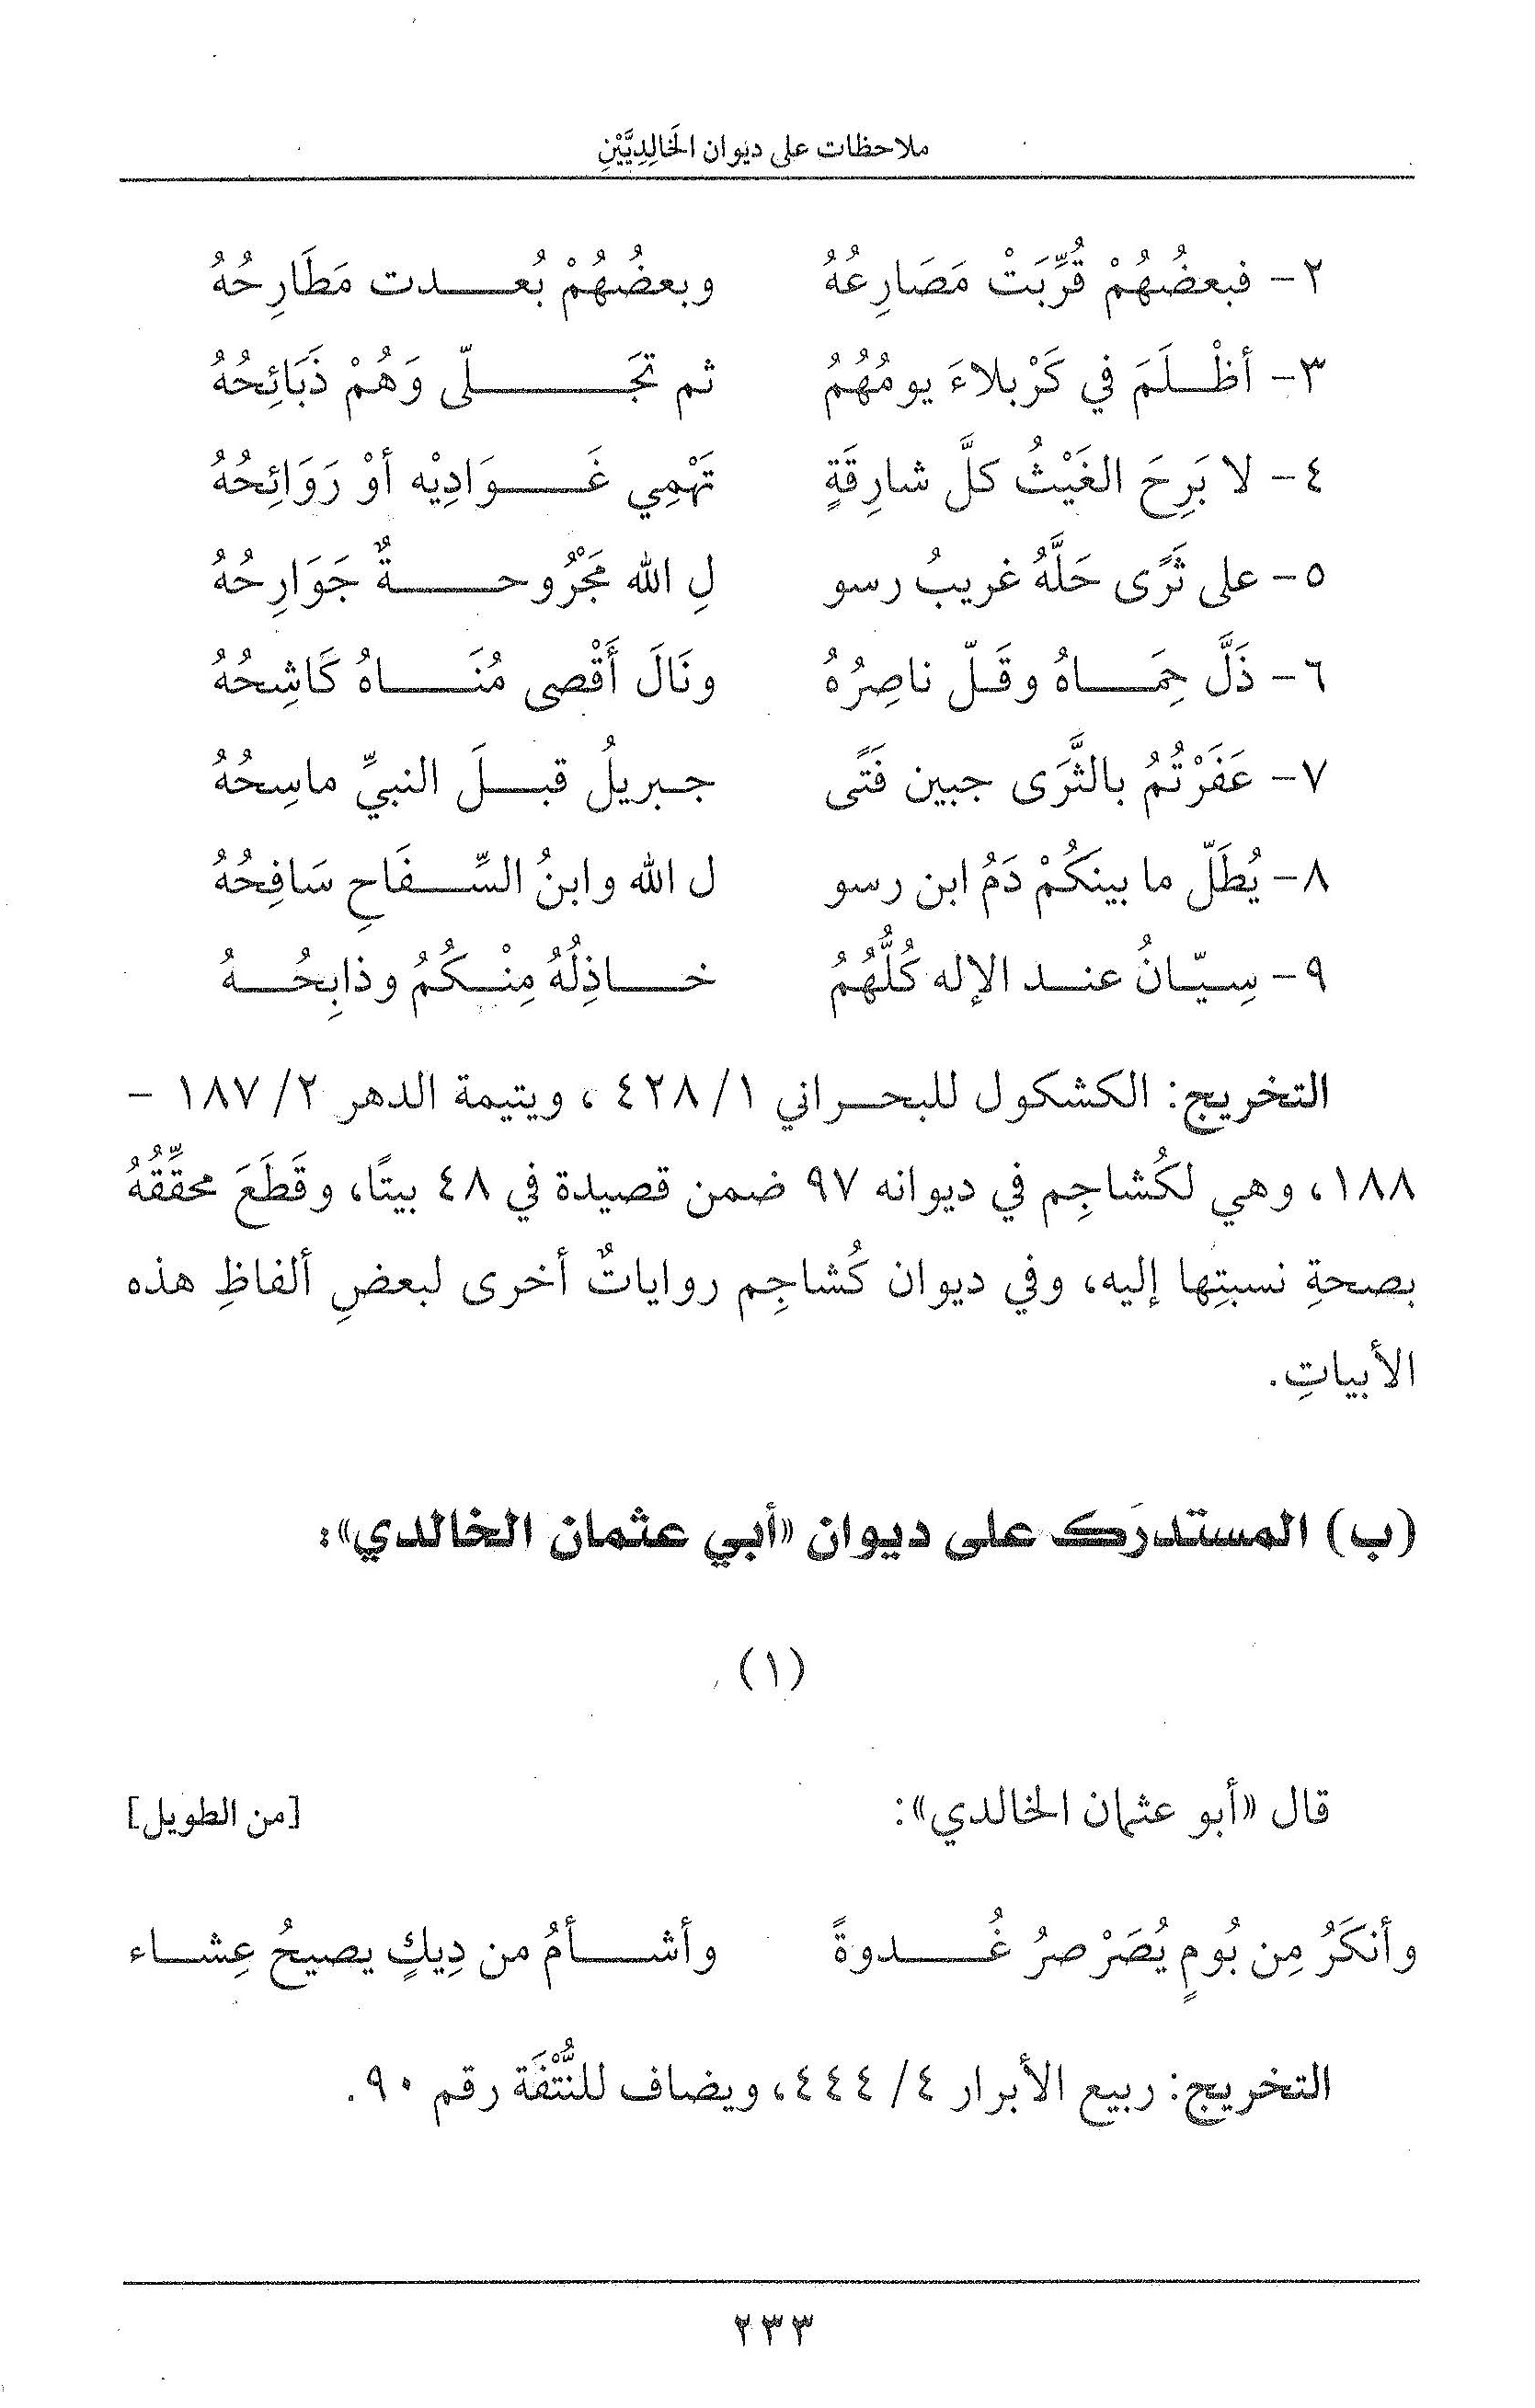 ملاحظات على ديوان الخَالِدِيَّيْنِ
٢- فبعضُهُمْ قُرِّبَتْ مَصَارِعُهُ وبعضُهُمْ بُعدت مَطَارِحُهُ
٣- أظْلَمَ في كَرْبلاءَ يومُهُمُ ثم تجَلّى وَهُمْ ذَبَائِحُهُ
٤- لا بَرِحَ الغَيْثُ كلَّ شارِقَةٍ تَهْمِي غَوَادِيْه أوْ رَوَائِحُهُ
٥- على ثَرًى حَلَّهُ غريبُ رسو لِ الله مَجْرُوحةٌ جَوَارِحُهُ
٦- ذَلَّ حِمَاهُ وقَلّ ناصِرُهُ ونَالَ أَقْصى مُنَاهُ كَاشِحُهُ
٧- عَفَرْتُمُ بالثَّرَى جبين فَتًى جبريلُ قبلَ النبيِّ ماسِحُهُ
٨- يُطَلّ ما بينكُمْ دَمُ ابن رسو ل الله وابنُ السِّفَاحِ سَافِحُهُ
٩- سِيّانُ عند الإله كُلُّهُمُ خاذِلُهُ مِنْكُمُ وذابِحُهُ
التخريج: الكشكول للبحراني ١/ ٤٢٨ ، ويتيمة الدهر ٢/ ١٨٧ -
١٨٨، وهي لكُشاجِم في ديوانه ٩٧ ضمن قصيدة في ٤٨ بيتًا، وقَطَعَ محقِّقُهُ
بصحةِ نسبتِها إليه، وفي ديوان كُشاجِم رواياتٌ أخرى لبعضِ ألفاظِ هذه
الأبياتِ.
(ب) المستدرَك على ديوان «أبي عثمان الخالدي»:
(١)
قال «أبو عثمان الخالدي»: [من الطويل]
وأنكَرُ مِن بُومٍ يُصَرْصرُ غُدوةً وأشأمُ من دِيكٍ يصيحُ عِشاء
التخريج: ربيع الأبرار ٤/ ٤٤٤، ويضاف للنُّتْفَة رقم ٩٠.
٢٣٣